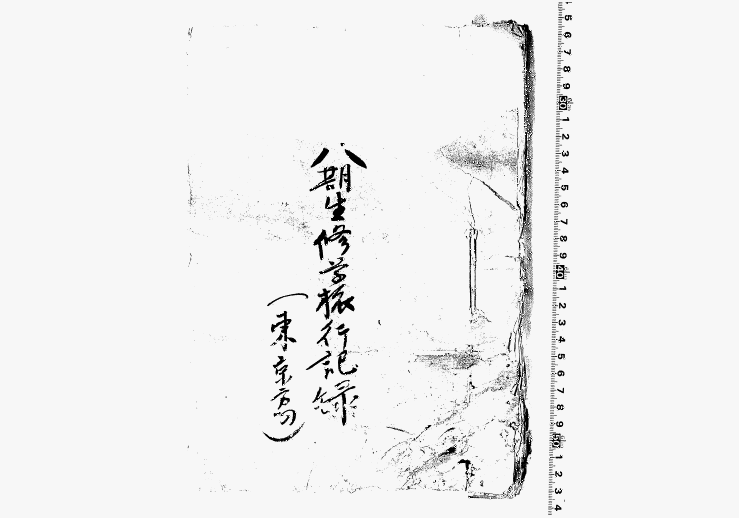 八期生修学旅行記録
（東京高）
5 6 7 8 9 30 1 2 3 4 5 6 7 8 9 40 1 2 3 4 5 6 7 8 9 50 1 2 3 4